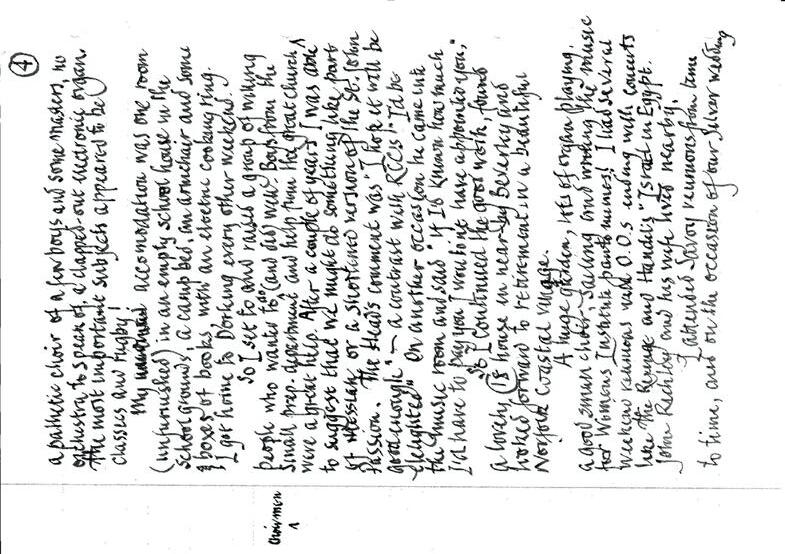 ④
a pathetic choir of a few boys and some masters, no
orchestra to speak of, a clapped-out electronic organ.
The most important subjects appeared to be
Classics and rugby!
My accomodation was one room
(unfurnished) in an empty school house in the
school grounds, a camp bed, an armchair and some
boxes of books with an electric cooking ring.
I got home to Dorking every other weekend.
So I set to and raised a group of willing
people who wanted to (and did) well. Boys from the
small prep. department and help from the great church
choirmen
were a great help. After a couple of years I was able
to suggest that we might do something like part
of Messiah or a shortened version of the St. John
Passion. The Head's comment was "I hope it will be
good enough" – a contrast with RCCS! I'd be
delighted". On another occasion he came into
the music room and said "if I'd known how much
I'd have to pay you I would not have appointed you,"
So I continued the good work, found
a lovely house in near-by Beverley and
looked forward to retirement in a beautiful
Norfolk Coastal village.
A huge garden, lots of organ playing,
a good 2 man choir, sailing and writing the music
for Womens Institute pantomimes! I had several
weekend reunions with O.O.s ending with concerts
like the Revenge and Handel's "Israel in Egypt".
John and his wife lived nearby.
I attended Savoy reunions from time
to time, and on the occasion of our silver wedding